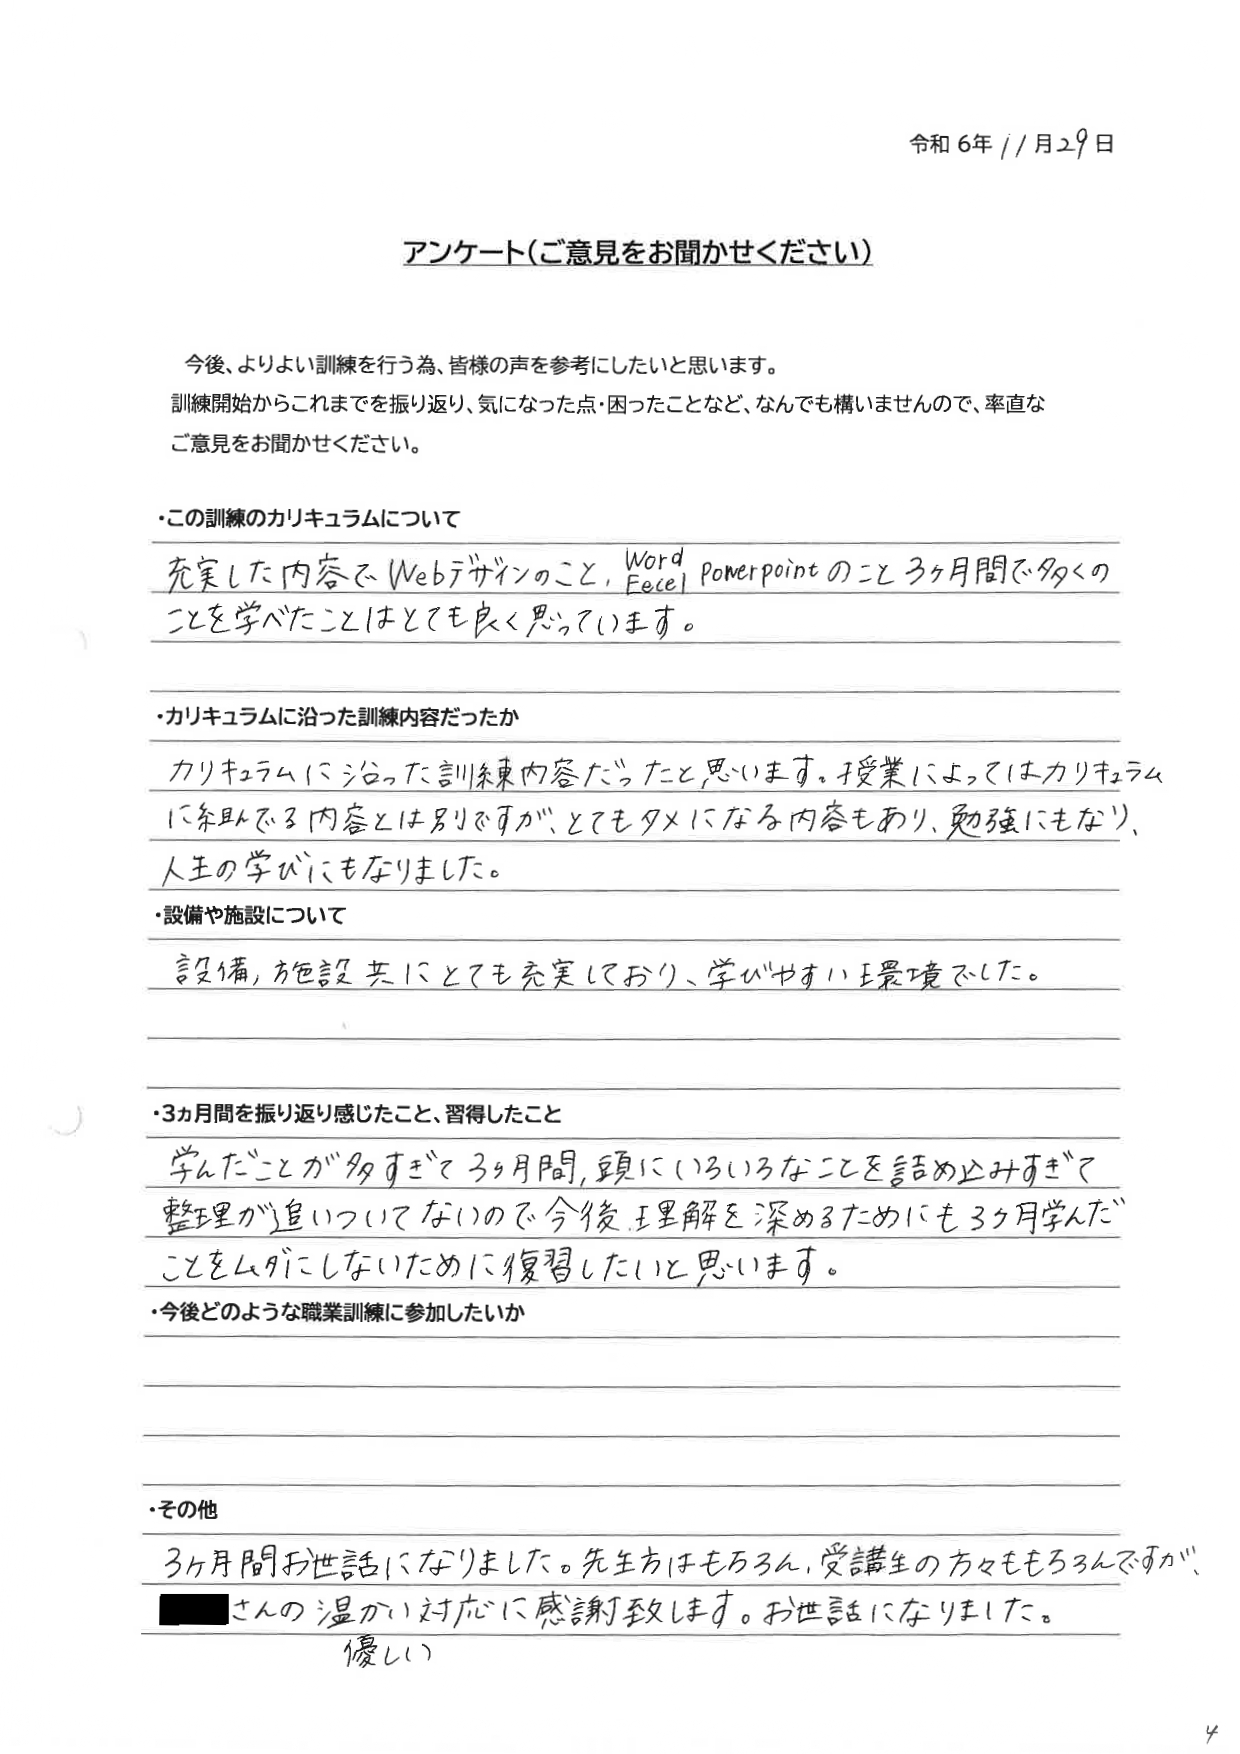 令和6年11月29日
アンケート(ご意見をお聞かせください)
今後、よりよい訓練を行う為、皆様の声を参考にしたいと思います。
訓練開始からこれまでを振り返り、気になった点・困ったことなど、なんでも構いませんので、率直な
ご意見をお聞かせください。
・この訓練のカリキュラムについて
充実した内容でWebデザインのこと, Word Eecel Powerpointのこと3ヶ月間で多くの
ことを学べたことはとても良く思っています。
・カリキュラムに沿った訓練内容だったか
カリキュラムに沿った訓練内容だったと思います。授業によってはカリキュラム
に組んでる内容とは別ですが、とてもタメになる内容もあり、勉強にもなり、
人生の学びにもなりました。
・設備や施設について
設備,施設共にとても充実しており、学びやすい環境でした。
・3ヵ月間を振り返り感じたこと、習得したこと
学んだことが多すぎて3ヶ月間,頭にいろいろなことを詰め込みすぎて
整理が追いついてないので今後、理解を深めるためにも3ヶ月学んだ
ことをムダにしないために復習したいと思います。
・今後どのような職業訓練に参加したいか
・その他
3ヶ月間お世話になりました。先生方はもちろん、受講生の方々ももちろんですが、
さんの温かい対応に感謝致します。お世話になりました。
優しい
4